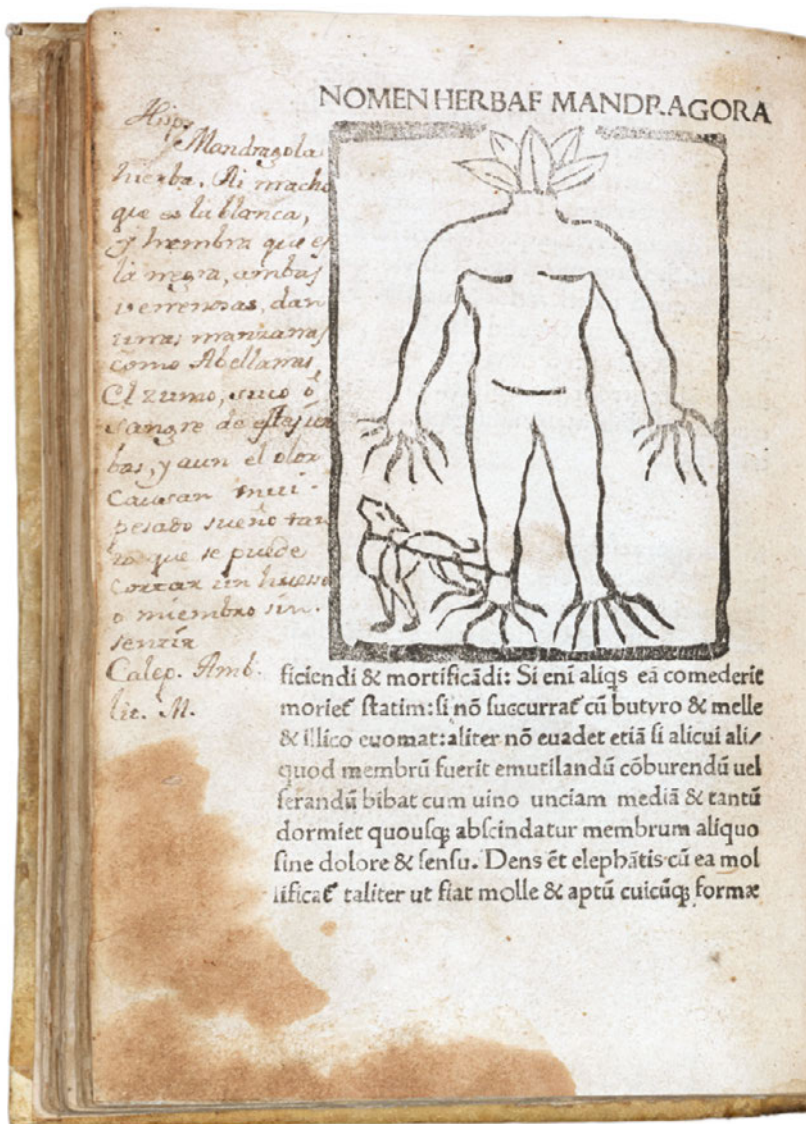 NOMEN HERBAE MANDRAGORA
Hisp.
Mandragola
hierba. Ai macho
que es la blanca,
y hembra que es
la negra, ambas
venenosas, dan
unas manzanas
como Abellanas,
El zumo, suco ô
sangre de estas ier
bas, y aun el olor
causan mui
pesado sueño tan
to que se puede
cortar un hueso
o miembro sin
sentir
Calep. Amb.
lit. M.
ficiendi & mortificãdi: Si eni aliqs eã comederit
moriet statim: si nõ succurrat cũ butyro & melle
& illico euomat: aliter nõ euadet etiã si alicui ali-
quod membrũ fuerit emutilandũ cõburendũ uel
serandũ bibat cum uino unciam mediã & tantũ
dormiet quousq; abscindatur membrum aliquo
sine dolore & sensu. Dens ēt elephãtis cũ ea mol
lificat taliter ut fiat molle & aptũ cuicũq; formæ